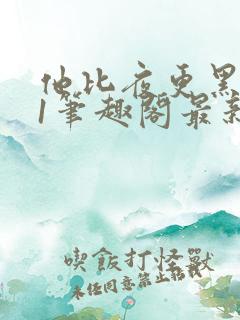 他比夜更黑
1笔趣阁最新
吃飯打怪獸
未经同意禁止转载